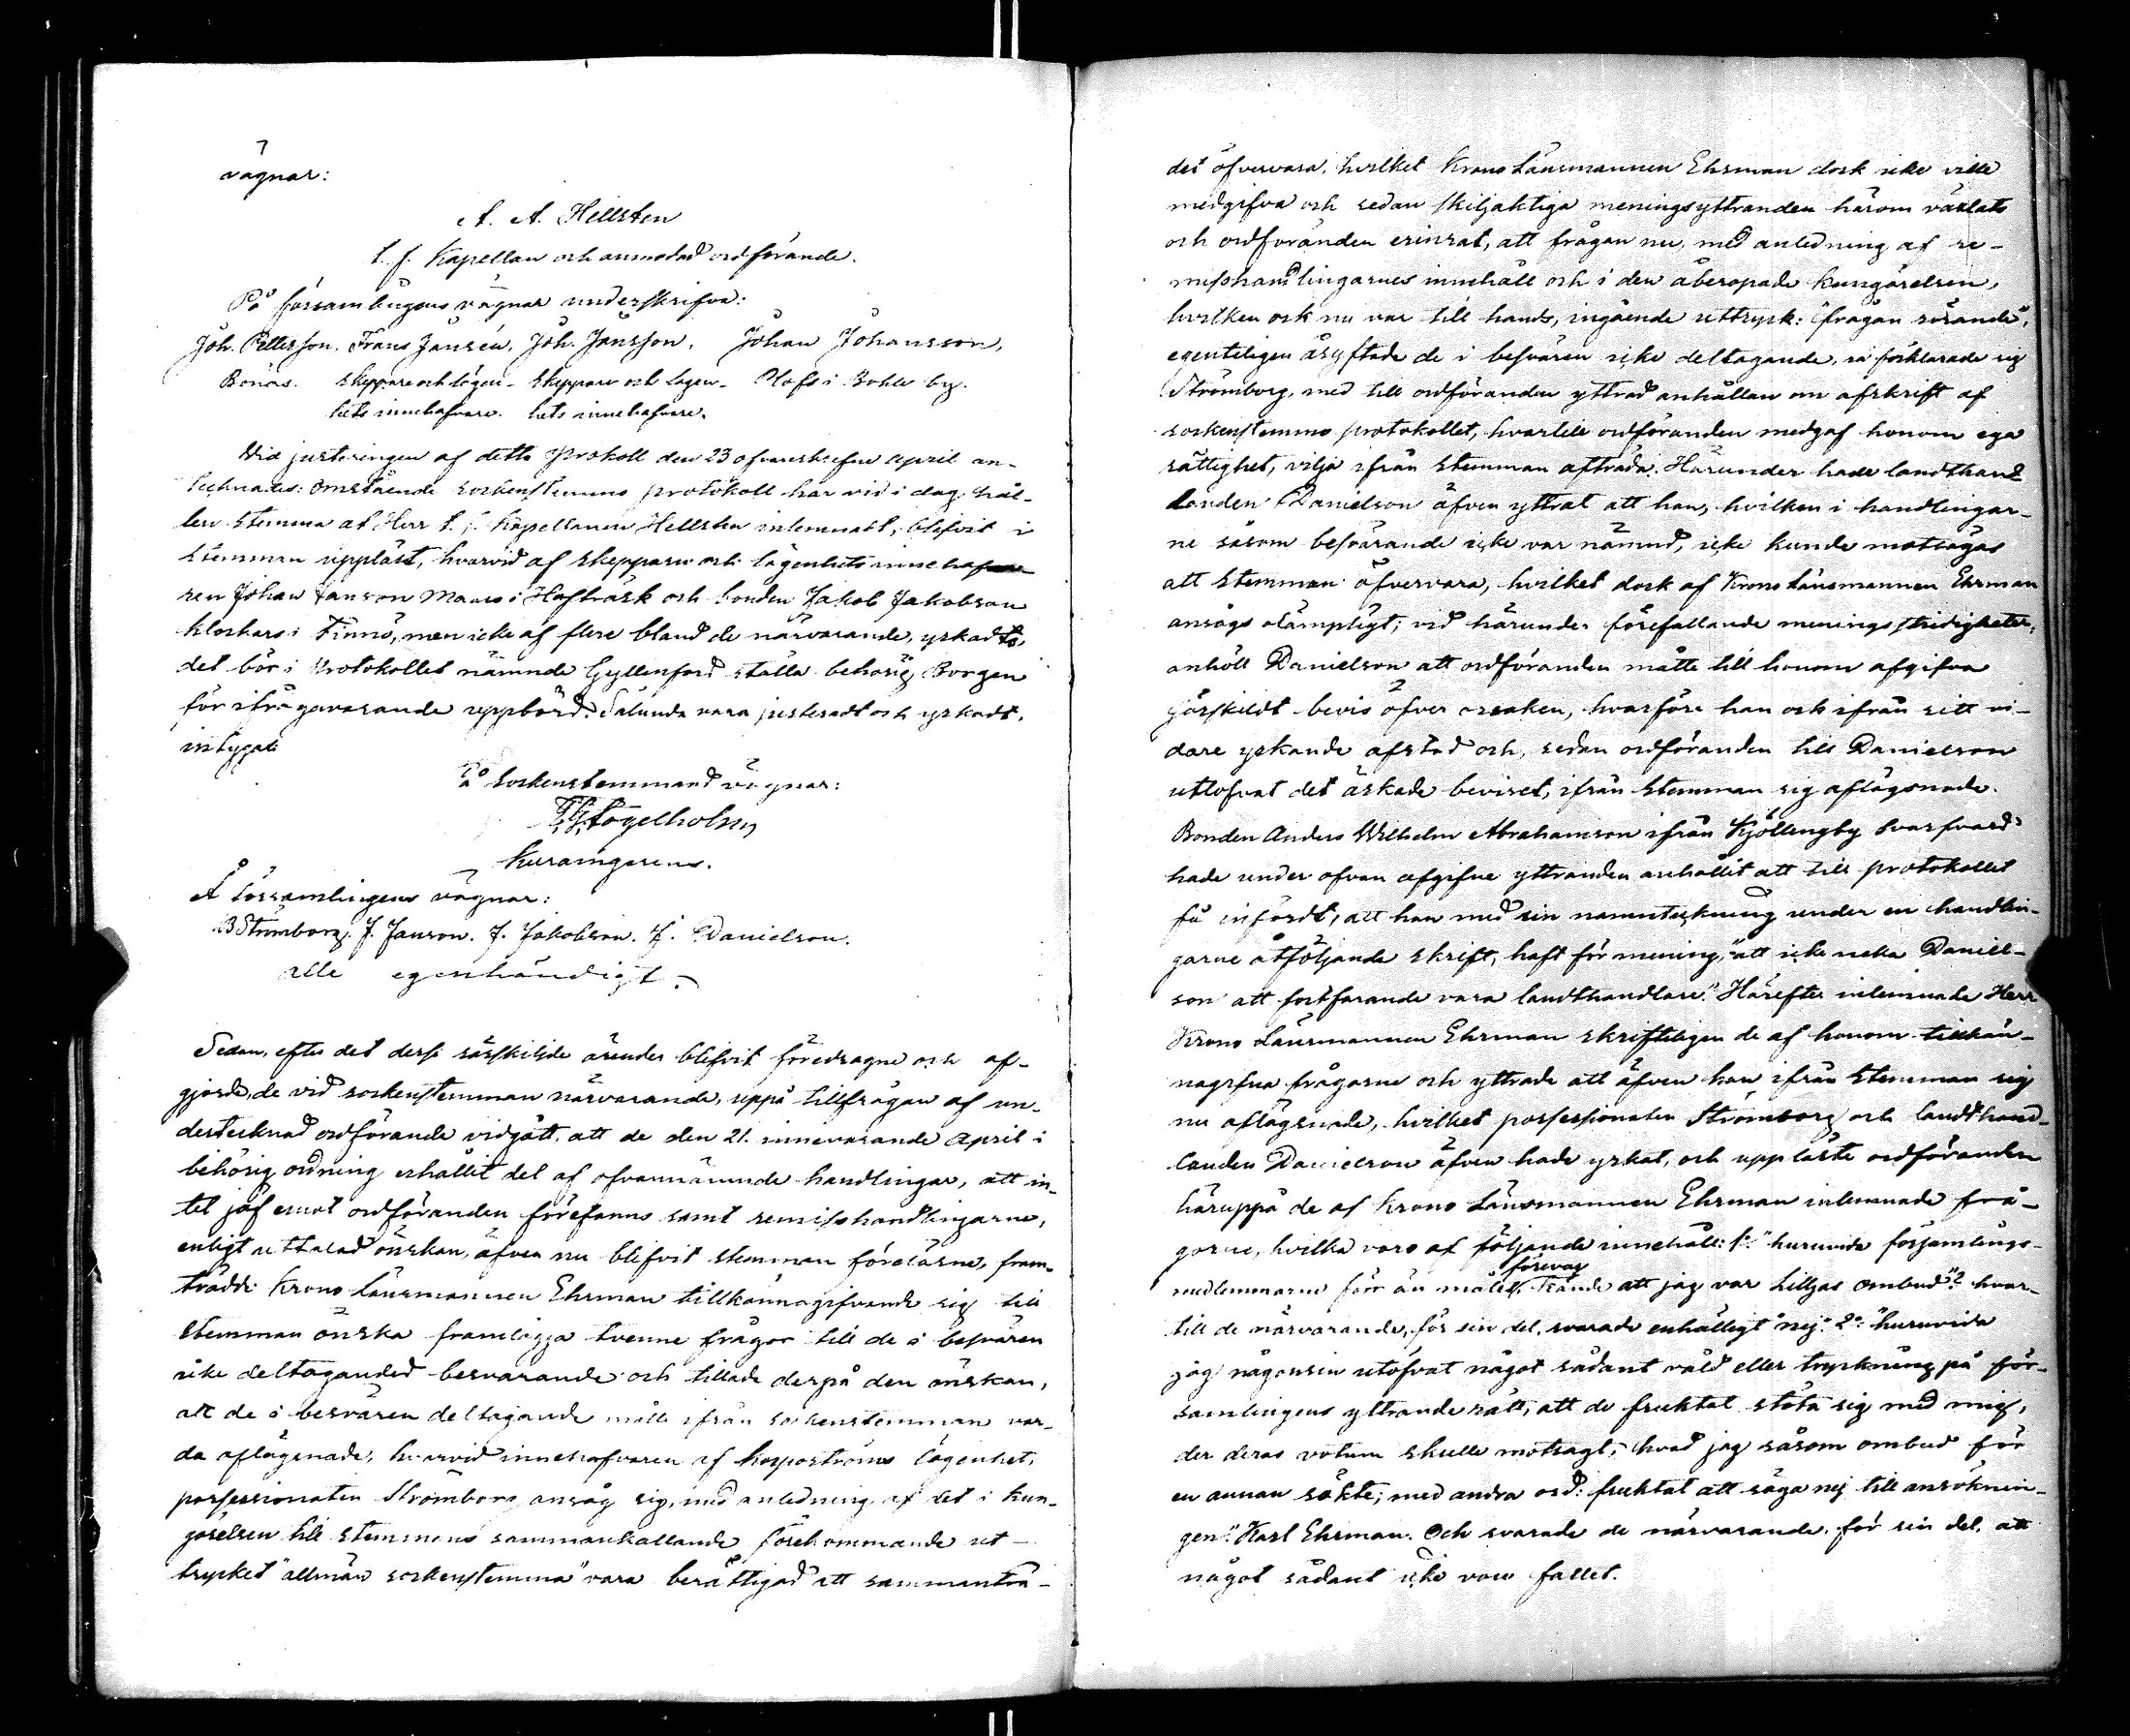 vägnar:
A. A. Hellsten
t. f. Kapellan och anmodad ordförande.
På församlingens vägnar underskrifva:
Joh. Pettersson. Frans Jansén. Joh. Jansson. Johan Johansson,
Bonäs. skeppare och lägen- skeppare och lägen- Olofs i Bohle by.
hets innehafvare. hets innehafvare.
Vid justeringen af detta Protokoll den 23 ofvanskrefne April an-
tecknades: Omstående sockenstemmo protokoll har vid i dag hål-
len stemma af Herr t. f. Kapellanen Hellsten inlemnadt, blifvit i
stemman uppläst, hvarvid af skepparen och lägenhets innehafva-
ren Johan Janson Maans i Hafträsk och bonden Jakob Jakobson
Klockars i Finnö, men icke af flere bland de närvarande, yrkades,
det bör i Protokollet nämnde Gyllenford ställa behörig Borgen
för ifrågavarande uppbörd. Sålunda vara justeradt och yrkadt,
intygat
På Sockenstemmans vägnar:
Fogelholm
Å Församlingens vägnar:
B Strömborg. J. Janson. J. Jakobson. J. Danielson.
alle egenhändigt.
Sedan, efter det desse särskilde ärender blifvit föredragne och af-
gjorde, de vid sockenstemman närvarande, uppå tillfrågan af un-
dertecknad ordförande vidgått, att de den 21. innevarande April i
behörig ordning erhållit del af ofvannämnde handlingar, att in-
tet jäf emot ordföranden förefanns samt remisshandlingarne,
enligt uttalad önskan, äfven nu blifvit stemman förelästne, fram-
trädde Krono Länsmannen Ehrman tillkännagifvande sig till
stemman önska framlägga tvenne frågor till de i besvären
icke deltagandes besvarande och tillade derpå den önskan,
att de i besvären deltagande måtte ifrån sockenstemman var-
da aflägsnade, hvarvid innehafvaren af Korpoströms lägenhet,
possessionaten Strömborg ansåg sig, med anledning af det i kun-
görelsen till stemmans sammankallande förekommande ut-
trycket "allmän sockenstemma" vara berättigad att sammanträ-
det öfvervara, hvilket Krono Länsmannen Ehrman dock icke ville
medgifva och sedan skiljaktiga meningsyttranden härom växlats
och ordföranden erinrat, att frågan nu, med anledning af re-
misshandlingarnes innehåll och i den åberopade kungörelsen,
hvilken ock nu var till hands, ingående uttryck: "frågan rörande",
egenteligen åsyftade de i besvären icke deltagande, så förklarade sig
Strömborg, med till ordföranden yttrad anhållan om afskrift af
sockenstemmo protokollet, hvartill ordföranden medgaf honom ega
rättighet, vilja ifrån stemman afträda. Härunder hade landthand-
landen Danielson äfven yttrat att han, hvilken i handlingar-
ne såsom besvärande icke var nämnd, icke kunde motsägas
att stemman öfvervara, hvilket dock af Krono Länsmannen Ehrman
ansågs olämpligt; vid härunder förefallande meningsstridigheter,
anhöll Danielson att ordföranden måtte till honom afgifva
särskildt bevis öfver orsaken, hvarföre han ock ifrån sitt vi-
dare yrkande afstod och, sedan ordföranden till Danielson
utlofvat det äskade beviset, ifrån stemman sig aflägsnade.
Bonden Anders Wilhelm Abrahamson ifrån Kjöllengby Svarfvars
hade under ofvan afgifne yttranden anhållit att till protokollet
få infördt, att han med sin namnteckning under en handlin-
garne åtföljande skrift, haft för mening, "att icke neka Daniel-
son att fortfarande vara landthandlare." Härefter inlemnade Herr
Krono Länsmannen Ehrman skrifteligen de af honom tillkän-
nagifna frågorne och yttrade att äfven han ifrån stemman sig
nu aflägsnade, hvilket possessionaten Strömborg och landthand-
landen Danielson äfven hade yrkat, och uppläste ordföranden
häruppå de af Krono Länsmannen Ehrman inlemnade frå-
gorne, hvilka voro af följande innehåll: 1:o "huruvida församlings-
medlemmarne förr än målet förevar kände att jag var Lilljas ombud"? hvar-
till de närvarande, för sin del, svarade enhälligt "nej". 2:o "huruvida
jag någonsin utöfvat något sådant våld eller tryckning på för-
samlingens yttranderätt, att de fruktat stöta sig med mig,
der deras votum skulle motsagt, hvad jag såsom ombud för
en annan sökte; med andra ord: fruktat att säga nej till ansöknin-
gen". Karl Ehrman. Och svarade de närvarande, för sin del, att
något sådant icke vore fallet.